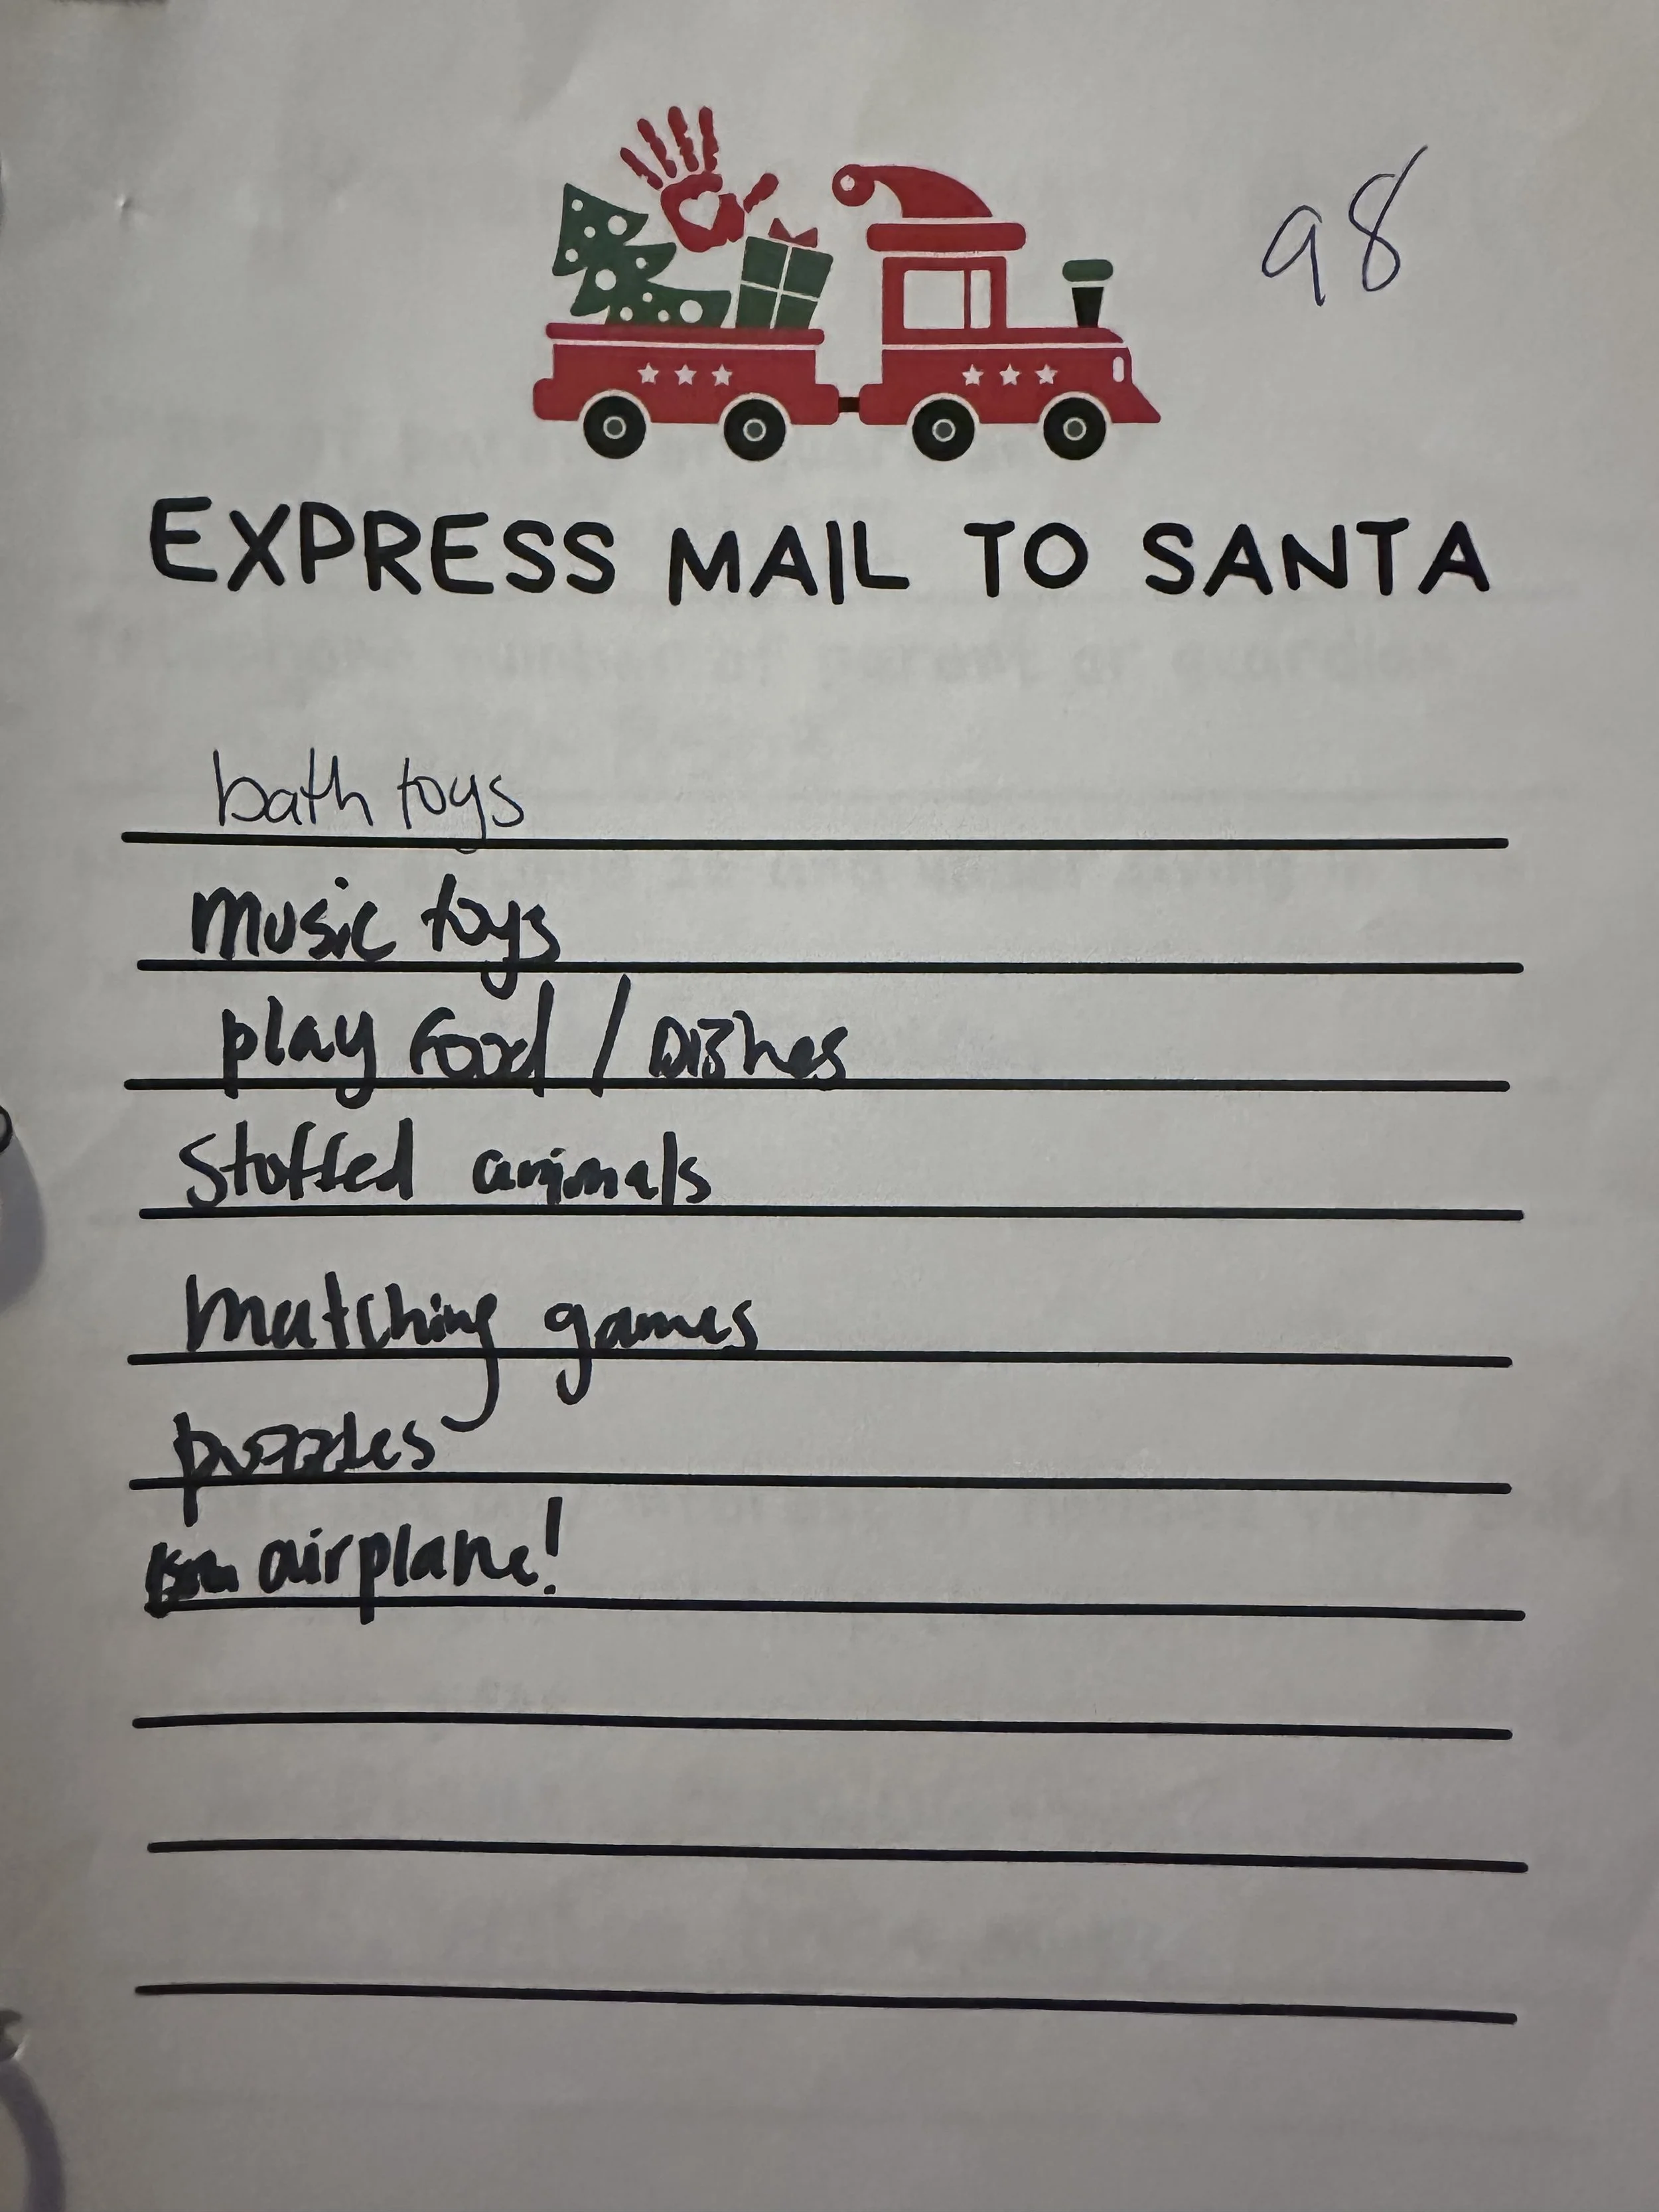 98
EXPRESS MAIL TO SANTA
bath toys
music toys
play food / Dishes
Stuffed animals
matching games
puzzles
airplane!